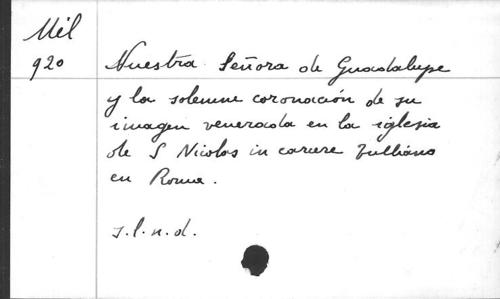 Mil
920
Nuestra Señora de Guadalupe
y la solemne coronación de su
imagen venerada en la iglesia
de S Nicolas in carcere Tulliano
en Roma.
s.l.n.d.